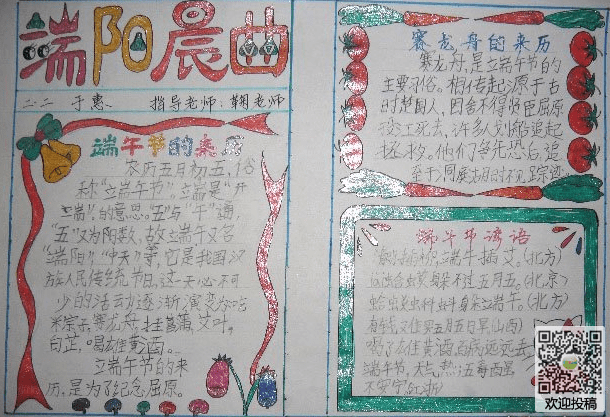 端阳晨曲
二·二 于惠 指导老师：鞠老师
端午节的来历
农历五月初五，俗
称“立端午节”，立端是“开
立端”的意思。五与“午”通，
“五”又为阳数，故立端午又名
“端阳”“中天”等，它是我国汉
族人民传统节日，这一天必不可
少的活动逐渐演变为吃
赛龙舟，挂菖蒲、艾叶，
白芷，喝雄黄酒。
立端午节的来
历，是为了纪念屈原。
赛龙舟的来历
赛龙舟，是立端午节的
主要习俗。相传起源于古
时楚国人，因舍不得贤臣屈原
投江死去，许多人划船追赶
拯救。他们争先恐后，追
至洞庭湖时不见踪迹
端午节谚语
端午插艾。(北方)
五月五。(北京)
端午。(北方)
五月五日
喝了雄黄酒，百病远走
端午节，天气热；五毒醒，
不安宁。
欢迎投稿